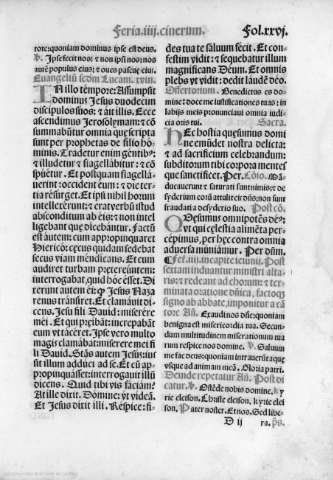 Feria.iiij.cinerum. Fol.xxvj.
rore: quoniam dominus ipse est deus.
℣. Ipse fecit nos: ⁊ non ipsi nos: nos
autē populus eius: ⁊ oues pascue eius.
Euangeliū secdm Lucam. xviij.
IN illo tempore: Assumpsit
dominus Jesus duodecim
discipulos suos: ⁊ ait illis. Ecce
ascendimus Jerosolymam: ⁊ cō
summabūtur omnia que scripta
sunt per prophetas de filio hō
minis. Tradetur enim gentibꝰ:
⁊ illudetur: ⁊ flagellabitur: ⁊ cō
spuetur. Et postquam flagella
uerint: occident eum: ⁊ die ter
tia resurget. Et ipsi nihil horum
intellexerunt: ⁊ erat verbū istud
absconditum ab eis: ⁊ non intel
ligebant que dicebantur. Factū
est autem: cum appropinquaret
Hiericho: cecus quidam sedebat
secus viam mendicans. Et cum
audiret turbam pretereuntem:
interrogabat, quid hoc esset. Di
xerunt autem ei: ꝙ Jesus Naza
renus transiret. Et clamauit di
cens. Jesu fili Dauid: miserere
mei. Et qui preibāt: increpabāt
eum vt taceret. Ipse vero multo
magis clamabat: miserere mei fi
li Dauid. Stās autem Jesus: ius
sit illum adduci ad se. Et cū ap
propinquasset: interrogauit illū
dicens. Quid tibi vis faciam?
At ille dixit. Domine: vt videā.
Et Jesus dixit illi. Respice: fi-
des tua te saluum fecit. Et con-
festim vidit: ⁊ sequebatur illum
magnificans Deum. Et omnis
plebs vt vidit: dedit laudē deo.
Offertorium. Benedictus es do
mine: doce me iustificationes tuas: in
labijs meis pronunciaui omnia iudi
cia oris tui. Sacra.
HEc hostia quesumus domi
ne emūdet nostra delicta:
⁊ ad sacrificium celebrandum:
subditorum tibi corpora mentes
que sanctificet. Per. Cōio. Mā
ducauerunt ⁊ saturati sunt nimis: ⁊ de
syderium eorū attulit eis dominus: non sunt
fraudati a desyderio suo. Post cō.
QUesumus omnipotēs de⁹:
vt qui celestia alimēta per
cepimus, per hec contra omnia
aduersa muniamur. Per dūm.
ieiunij. Post
sextam induantur ministri alta
rius: ⁊ redeant ad chorum: ⁊ ter
minata oratione dn̄ica, factoqꝫ
signo ab abbate, imponitur a cā
tore Añ. Exaudi nos dn̄e: quoniam
benigna est misericordia tua. Secun
dum multitudinem miserationum tua
rum respice nos domine. ℣. Saluum
me fac deus: quoniam intrauerūt aque
vsque ad animam meā. Gloria patri.
Deinde repetatur Añ. Post di
catur. ℣. Ostēde nobis domine. Ky
rie eleison. Christe eleison. kyrie elei
son. Pater noster. Et nos. Sed libe-
D ij ra. ps̄.